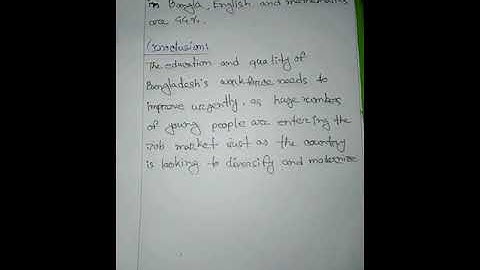 in Bangla, English, and mathematics
are 44%.
Conclusion:
The education and quality of
Bangladesh's workforce needs to
improve urgently, as huge numbers
of young people are entering the
job market just as the country
is looking to diversify and modernize